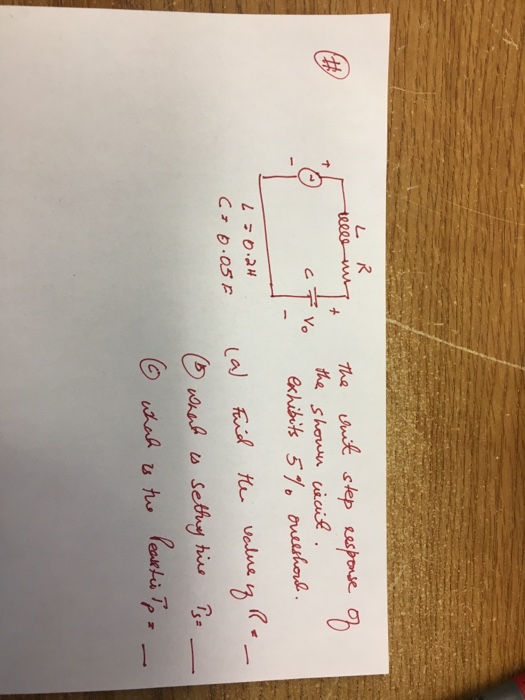 #
The unit step response of
the shown circuit.
exhibits 5% overshoot.
L R
+ + 
C Vo
- -
L = 0.2H
C = 0.05F
(a) Find the value of R = _
(b) what is settling time Ts = _
(c) what is the Peak time Tp = _